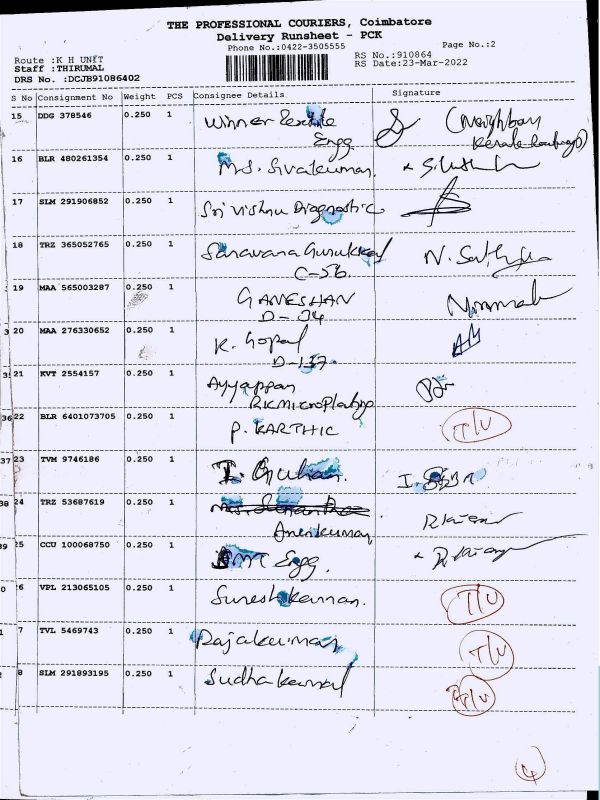 THE PROFESSIONAL COURIERS, Coimbatore
Delivery Runsheet - PCK
Phone No.:0422-3505555 Page No.:2
Route :K H UNIT RS No.:910864
Staff :THIRUMAL RS Date:23-Mar-2022
DRS No. :DCJB91086402
S No Consignment No Weight PCS Consignee Details Signature
15 DDG 378546 0.250 1 Winner Textile (Neighbour
Engg
16 BLR 480261354 0.250 1 M.S. Sivakumar.
17 SLM 291906852 0.250 1 Sri Vishnu Diagnostic
18 TRZ 365052765 0.250 1 Saravana Gurukkal N. Sathya
C-56.
19 MAA 565003287 0.250 1 GANESHAN Nirmala
D-34
20 MAA 276330652 0.250 1 K. Gopal AM
D-137.
21 KVT 2554157 0.250 1 Ayyappan
22 BLR 6401073705 0.250 1 P. KARTHIC T/U
23 TVM 9746186 0.250 1 I. Guhan.
24 TRZ 53687619 0.250 1
Anenkumar
25 CCU 100068750 0.250 1 Engg.
6 VPL 213065105 0.250 1 Suresh Kannan. T/U
7 TVL 5469743 0.250 1 Rajakumar T/U
8 SLM 291893195 0.250 1 Sudhakamal T/U
4